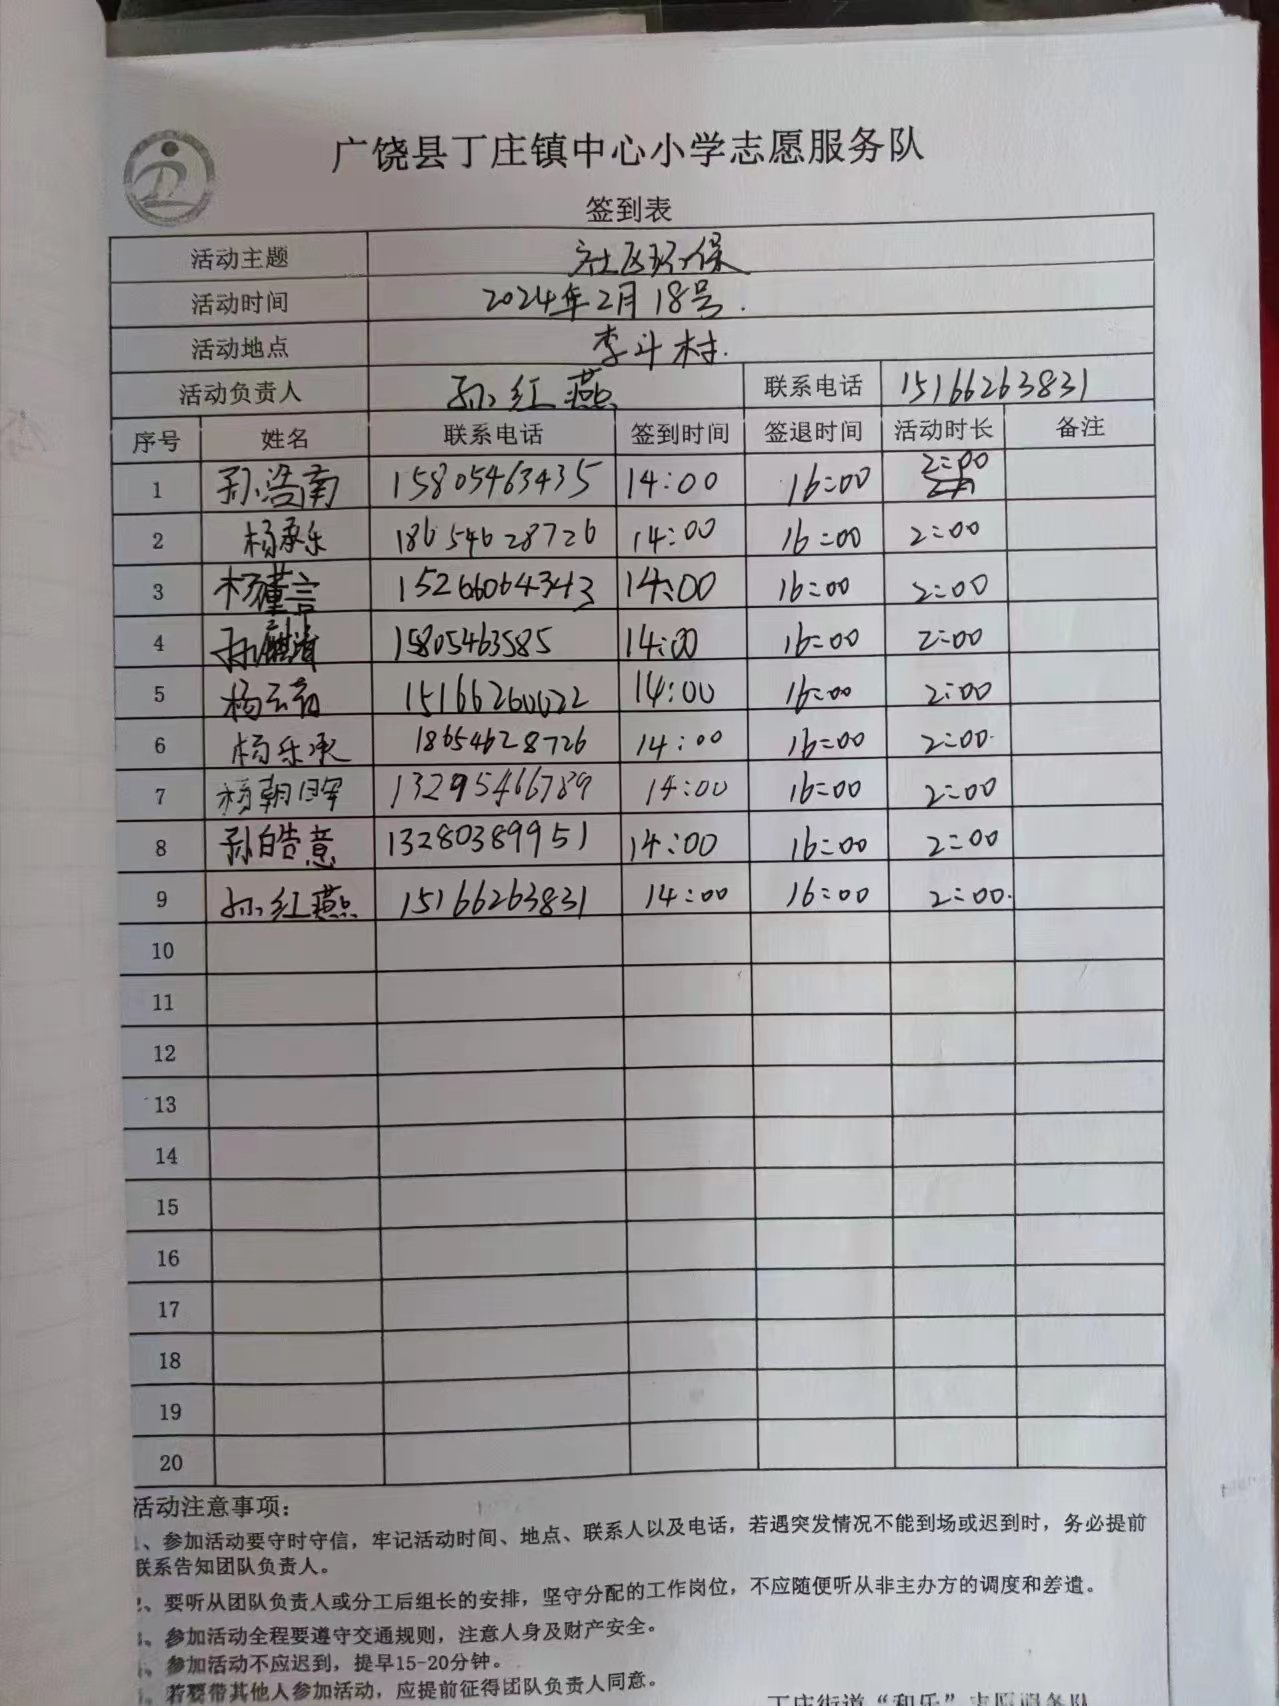 广饶县丁庄镇中心小学志愿服务队
签到表
活动主题 社区环保
活动时间 2024年2月18号.
活动地点 李斗村.
活动负责人 孙红燕 联系电话 15166263831
序号 姓名 联系电话 签到时间 签退时间 活动时长 备注
1 孙浩南 15805463435 14:00 16:00 2:00
2 杨承乐 18654628726 14:00 16:00 2:00
3 杨瑾言 15266064343 14:00 16:00 2:00
4 15805463585 14:00 16:00 2:00
5 15166260022 14:00 16:00 2:00
6 杨乐承 18654628726 14:00 16:00 2:00.
7 杨朝晖 13295466789 14:00 16:00 2:00
8 孙皓意 13280389951 14:00 16:00 2:00
9 孙红燕 15166263831 14:00 16:00 2:00.
10
11
12
13
14
15
16
17
18
19
20
活动注意事项：
、参加活动要守时守信，牢记活动时间、地点、联系人以及电话，若遇突发情况不能到场或迟到时，务必提前
联系告知团队负责人。
、要听从团队负责人或分工后组长的安排，坚守分配的工作岗位，不应随便听从非主办方的调度和差遣。
、参加活动全程要遵守交通规则，注意人身及财产安全。
、参加活动不应迟到，提早15-20分钟。
、若要带其他人参加活动，应提前征得团队负责人同意。
丁庄街道“和乐”志愿服务队